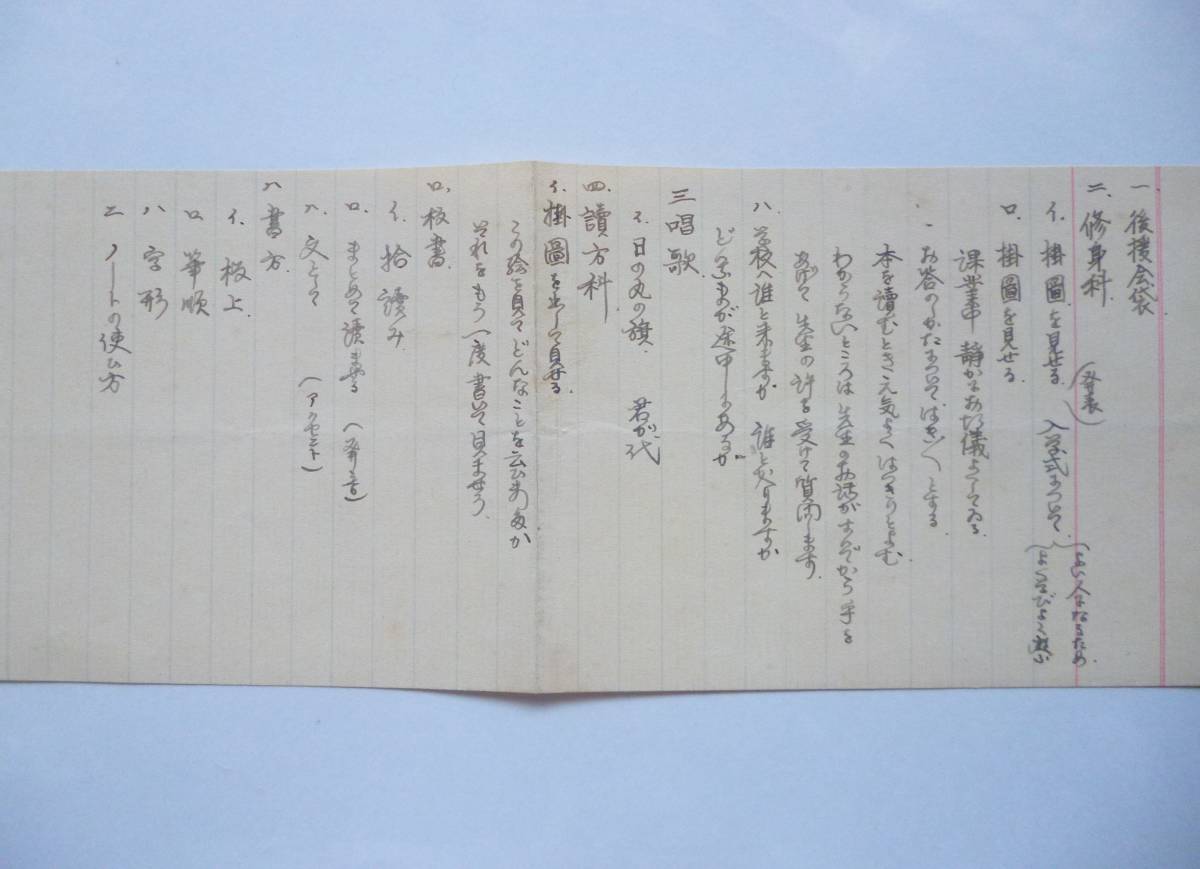 一、後援会袋
二、修身科 (発表)
イ、掛圖を見せる 入学式について よい人になるため
よく学びよく遊ぶ
ロ、掛圖を見せる
課業中静かにお行儀よくしてゐる
、お答のしかたについて はき〱とする
本を讀むとき元気よくはつきりとよむ
わからないところは先生のお話がすんでから手を
あげて先生の許を受けて質問します
ハ、学校へ誰と来ますか 誰とかへりますか
どんなものが途中にあるか
三 唱歌
イ、日の丸の旗 君が代
四、讀方科
イ、掛圖を出して見せる
この絵を見てどんなことを云ひましたか
それをもう一度書いて見ませう
ロ、板書
イ、拾讀み
ロ、まとめて讀ませる (発音)
ハ、文として (アクセント)
ハ書方
イ、板上
ロ、筆順
ハ、字形
ニ、ノートの使ひ方